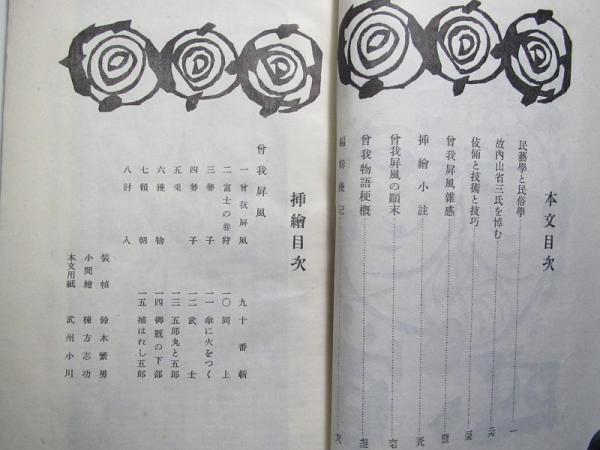 本文目次
民藝學と民俗學 一
故內山省三氏を悼む
伎倆と技術と技巧
曾我屛風雜感
挿繪小註
曾我屛風の顚末
曾我物語梗槪
編輯後記
挿繪目次
曾我屛風
一 曾我屛風
二 富士の卷狩
三 勢子
四 勢子
五 兎子
六 獲物
七 賴朝
八 討入
九 十番斬
一〇 同上
一一 傘に火をつく
一二 武士
一三 五郎丸と五郎
一四 御厩の下部
一五 捕はれし五郎
裝幀 鈴木繁男
小間繪 棟方志功
本文用紙 武州小川